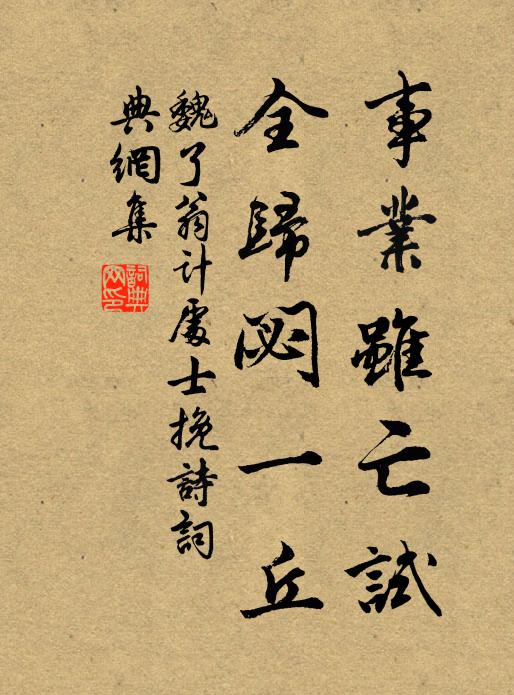 事業雖亡試
全歸閟一丘
魏了翁計處士挽詩詞
典網集
詞典
网印